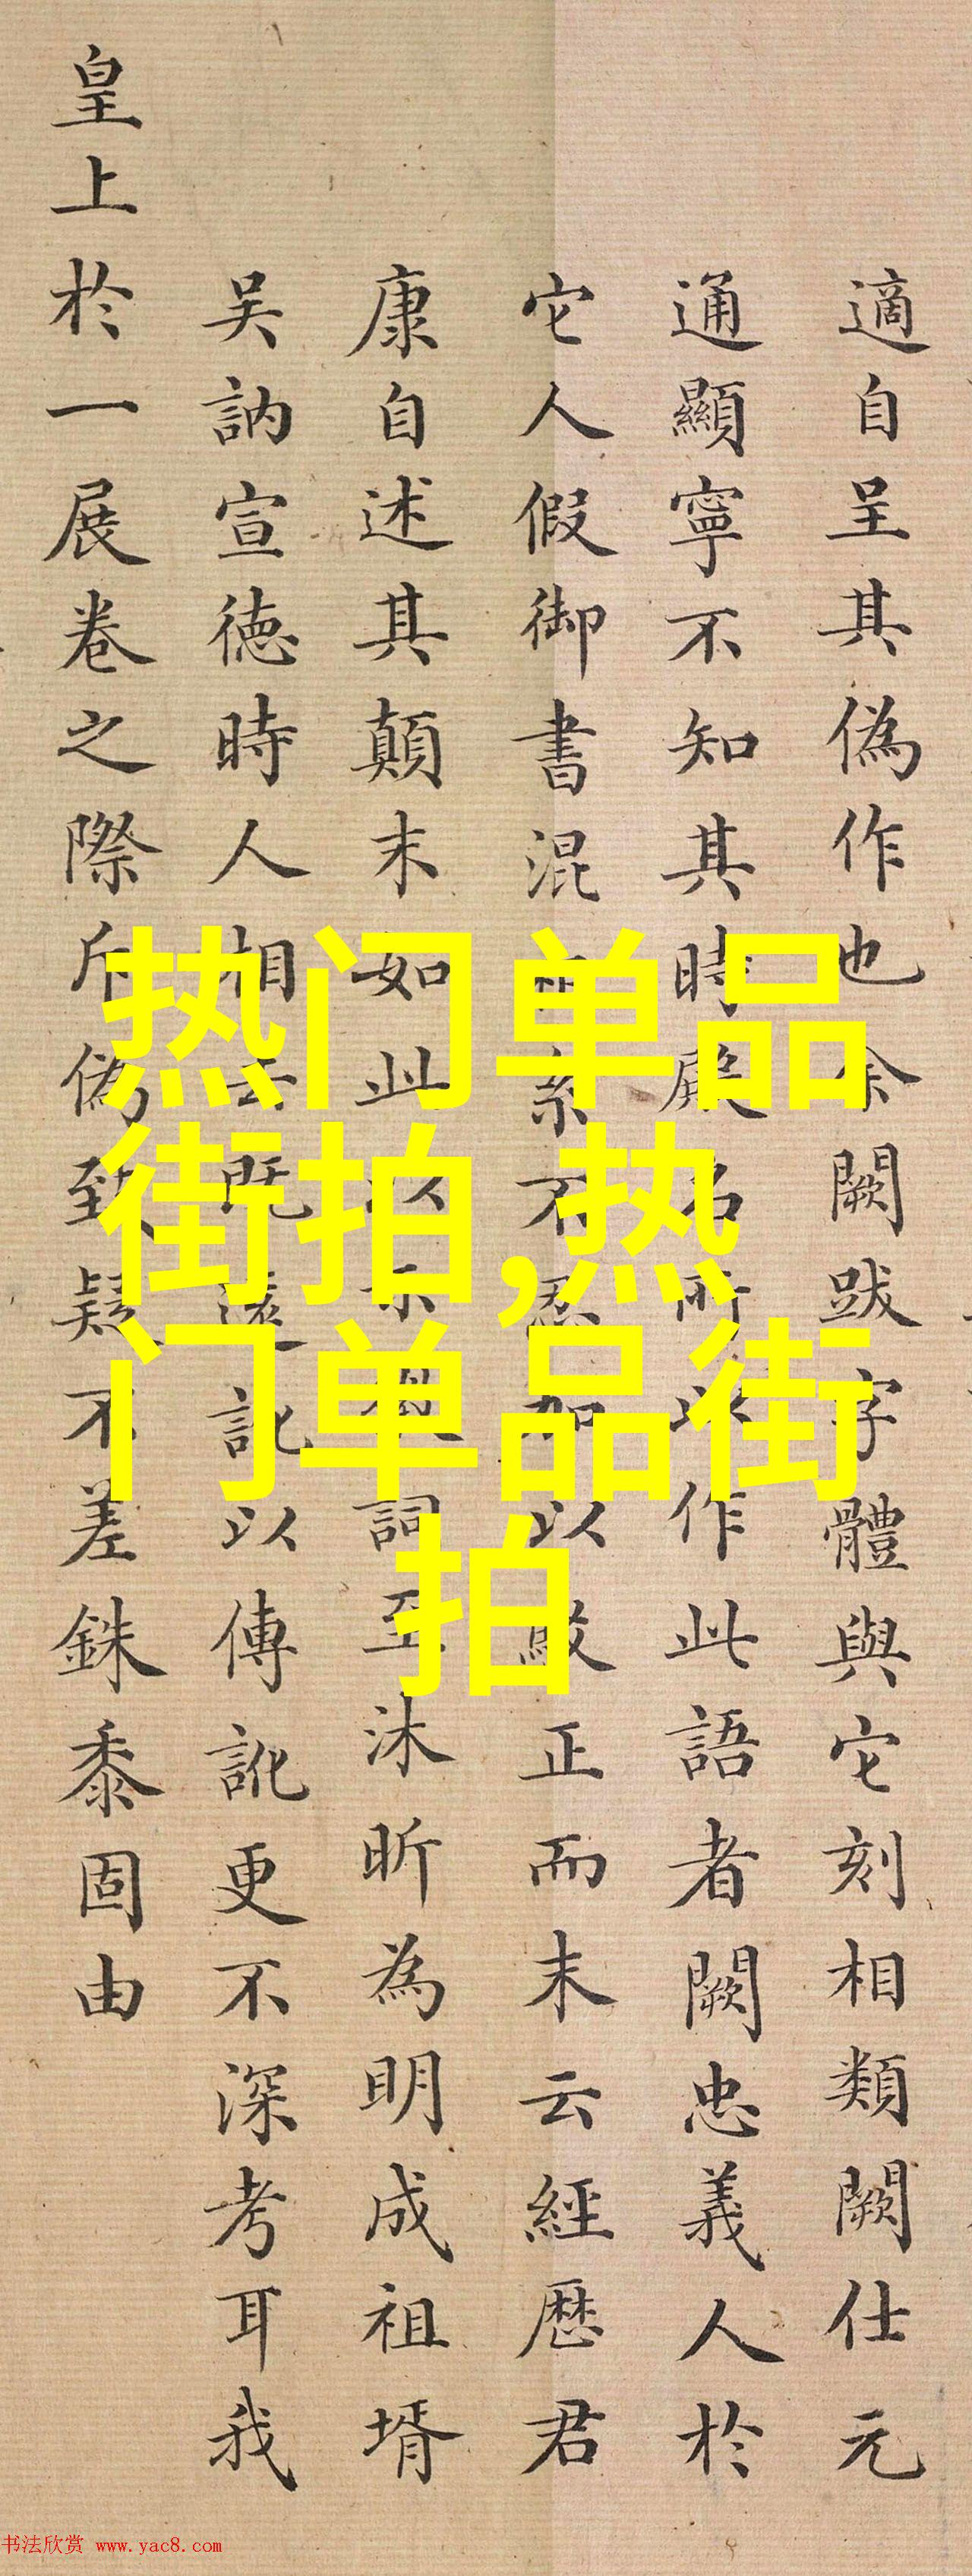 適自呈其偽作也余闕跋字體與它刻相類闕仕元
通顯寧不知其時殿名所以作此語者闕忠義人於
它人假御書混 系不忍加以 正而末云經歷君
康自述其顛末如此以示 詞臣沐昕為明成祖壻
吴訥宣德時人相去既遠訛以傳訛更不深考耳我
皇上於一展卷之際斥偽致疑不差銖黍固由
热门单品
街拍,热
门单品街
拍
书法欣赏 www.yac8.com